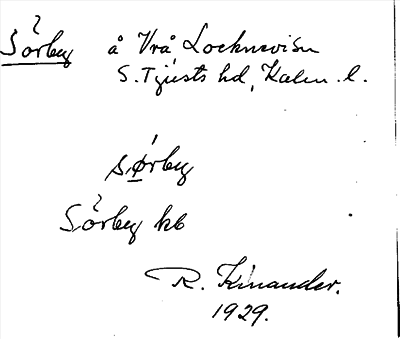 Sörby å Vrå Locknevisn
S. Tjusts hd, Kalm. l.
sørby
Sörby kb
R. Kinander.
1929.